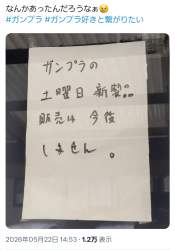 なんかあったんだろうなぁ😢
#ガンプラ #ガンプラ好きと繋がりたい
ガンプラの
土曜日 新製品
販売は 今後
しません。
2026年05月22日 14:53・1.2万 表示